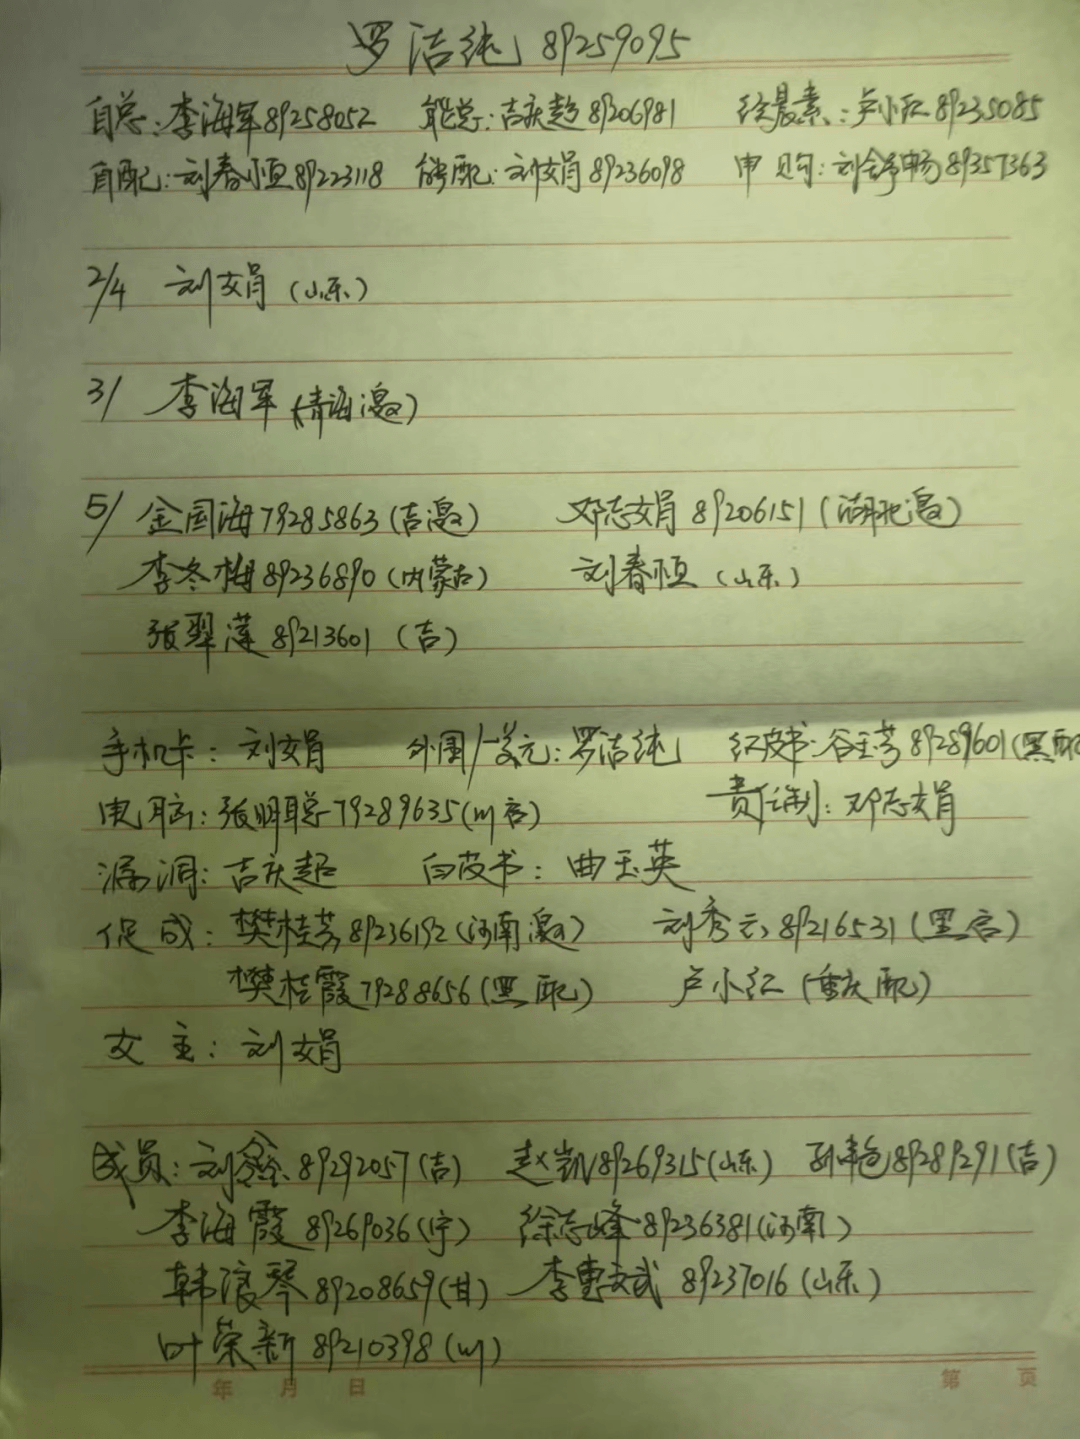 罗洁纯 89259095
自总:李海军89258052 能总:吉庆超89206981 徐晨素:卢小红89235085
自配:刘春恒89223118 能配:刘文娟89236098 申购:刘舒畅89357363
2/4 刘文娟(山东)
3/ 李海军(青海邀)
5/ 金国海79285863(吉邀) 邓志娟89206151(湖北邀)
李冬梅89236890(内蒙古) 刘春恒(山东)
张翠莲89213601(吉)
手机卡:刘文娟 外国/美元:罗洁纯 红皮书:谷玉芳89289601(黑配
电脑:张明聪79289635(川启) 责任制:邓志娟
漏洞:吉庆超 白皮书:曲玉英
促成:樊桂芳89236192(河南邀) 刘秀云89216531(黑启)
樊桂霞79288656(黑配) 卢小红(重庆配)
文主:刘文娟
成员:刘鑫89292057(吉) 赵凯89269315(山东) 孙艳89289291(吉)
李海霞89269036(宁) 徐志峰89236381(河南)
韩浪琴89208659(甘) 李惠武89237016(山东)
叶荣新89210398(川)
年 月 日 第 页